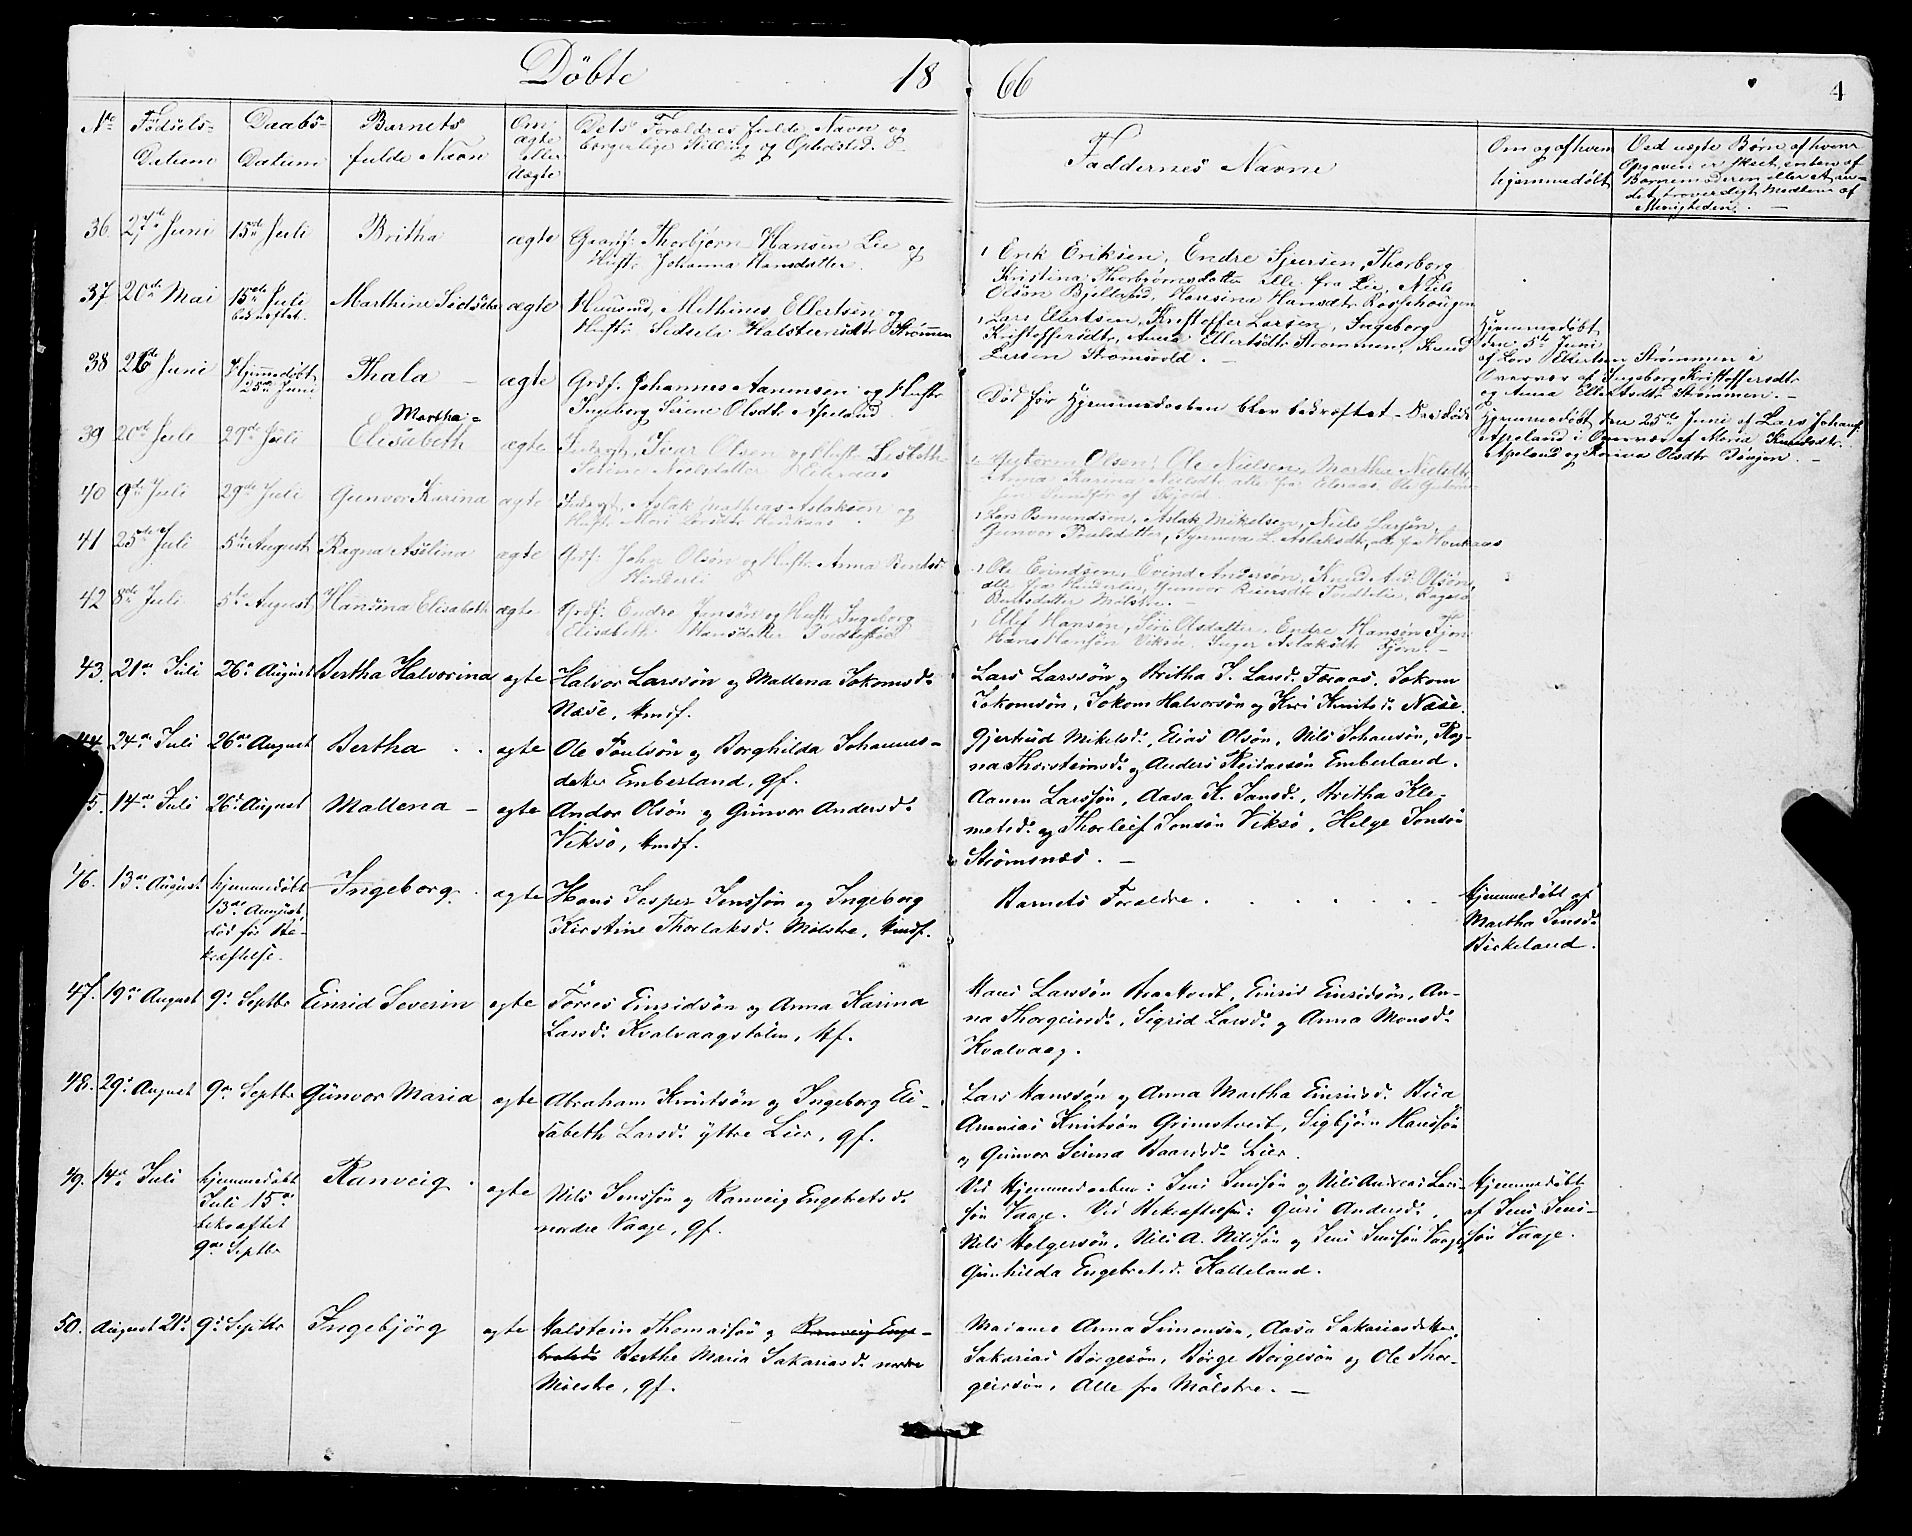 Döbte 18 66 4
No Fødsels- Datum
Daabs- Datum
Barnets fulde Navn
Om ægte eller uægte
Dets Forældres fulde Navn og
borgerlige Stilling og Opholdsted.
Faddernes Navne
Om og af hvem
hjemmedøbt
Ved uægte Børn af hvem
Opgaven er skeet, enten af
Barnemoderen eller et an-
det troværdigt Medlem af
Menigheden.
36. 27de Juni 15de Juli Britha ægte Gaardf. Thorbjørn Hansen Lie og
Hustr. Johanna Hansdatter.
Erik Eriksen, Endre Sjursen, Thorborg
Kristina Thorbjørnsdatter alle fra Lie, Niels
Olsøn Bjelland, Hansina Hansdtr
37 20de Mai 15de Juli bekræftet. Marthine ægte Huusmd. Methinus Ellertsen og
Hustr. Sidsele Halsteinsdtr Strømmen
Lars Ellertsen, Kristoffer Larsen, Ingeborg
Kristoffersdtr, Anna Ellertsdtr Strømmen, Knud
Larsen Strømsvold.
Hjemmedøbt
den 5te Juni
af Lars Ellertsen Strømmen i
Overvær af Ingeborg Kristoffersdtr
og Anna Ellertsdtr Strømmen.
38 26de Juni Hjemmedøbt 25de Juni Thala ægte Grdf. Johannes Aamunsen og Hustr
Ingeborg Serene Olsdtr Apeland
Død før Hjemmedaaben blev bekræftet
Hjemmedøbt den 25de Juni af Lars Johans.
Apeland i Overvær af Maria Knudsdtr.
Apeland og Olsdtr
39 20de Juli 29de Juli Martha Elisabeth ægte Ivar Olsen og Hustr. Lisbeth
Seline Nielsdatter
Guttorm Olsen, Ole Nielsen, Martha Nielsdtr
Anna Karina Nielsdtr alle fra
40 9de Juli 29de Juli Gunvor Karina ægte Aslak Mathias Aslaksen og
Hustr. Mari Larsdtr
Lars Osmundsen, Aslak Mikelsen, Niels Larsøn,
Gunvor Poulsdatter, Synneva L. Aslaksdtr, alle fra
41 25de Juli 5te August Ragna Aselina ægte Grdf. John Olsøn og Hustr. Anna
Hinderli
Ole Evindsen, Evind Andersøn, Knud And. Olsøn
alle fra Hinderlie, Gunvor
Mølstre.
42 8de Juli 5te August Hansina Elisabeth ægte Grdf. Endre Jensøn og Hustr. Ingeborg
Elisabeth Hansdatter
Ellef Hansen, Siri Olsdatter, Endre Hansøn Fjon
Hans Hansøn Viksøe, Inger Aslaksdtr Fjon.
43. 21de Juli 26de August Bertha Halvorina ægte Halvor Larssøn og Mallena Jokomsd.
Næse, hmdf.
Lars Larssøn og Britha J. Larsd. Foraas, Jokom
Jokomsøn, Jokom Halvorsøn og Kari Knutsd. Næse.
44. 24de Juli 26de August Bertha ægte Ole Poulsøn og Borghilda Johannes-
datter Emberland, gf.
Gjertrud Mikelsd., Elias Olsøn, Nils Johansøn, Rag-
na Thorsteinsd. og Anders Reidarsøn Emberland.
5. 14de Juli 26de August Mallena ægte Andor Olsøn og Gunvor Andersd.
Viksø, hmdf.
Aanen Larssøn, Aasa K. Jansd., Britha Kle-
metsd. og Thorleif Jonsøn Viksø, Helge Jonsøn
Strømsnæs.
46. 13de August hjemmedøbt
13de August,
død før Be-
kræftelse.
Ingeborg ægte Hans Jesper Jenssøn og Ingeborg
Kirstine Thorlaksd. Mølstre, hmdf.
Barnets Forældre.
Hjemmedøbt af
Martha Jensd.
Birkeland.
47. 19de August 9de Septbr Einrid Severin ægte Torres Einridsøn og Anna Karina
Larsd. Kvalvaagstølen, hf.
Hans Larssøn Einrid Einridsøn, An-
na Thorgeirsd., Sigrid Larsd. og Anna Monsd.
Kvalvaag.
48. 29de August 9de Septbr Gunvor Maria ægte Abraham Knutsøn og Ingeborg Eli-
sabeth Larsd. yttre Lier, gf.
Lars Hanssøn og Anna Martha Einridsd. Bua
Ananias Knutsøn Grimstveit, Sigbjørn Hanssøn
og Gunvor Serina Baardsd. Lier.
49. 14de Juli hjemmedøbt
Juli 15de
bekræftet
9de Septbr
Ranveig ægte Nils Jenssøn og Ranveig Engebretsd.
nordre Vaage, gf.
Ved Hjemmedaaben: Jens Jenssøn og Nils Andreas Lars-
søn Vaage. Ved Bekræftelsen: Guri Andersd.,
Nils Holgersøn, Nils A. Nilssøn og Jens Jenssøn Vaage,
Gunhilda Engebretsd. Kalleland.
Hjemmedøbt
af Jens Jens-
søn Vaage.
50. August 21de 9de Septbr Ingebjörg ægte Halstein Thomassøn og Ranveig Enge-
bretsd. Berthe Maria Sakariasd. nordre
Mølstre, gf.
Mariane Anna Simonsøn, Aasa Sakariasdatter,
Sakarias Børgesøn, Børge Børgesøn og Ole Thor-
geirsøn, Alle fra Mølstre.